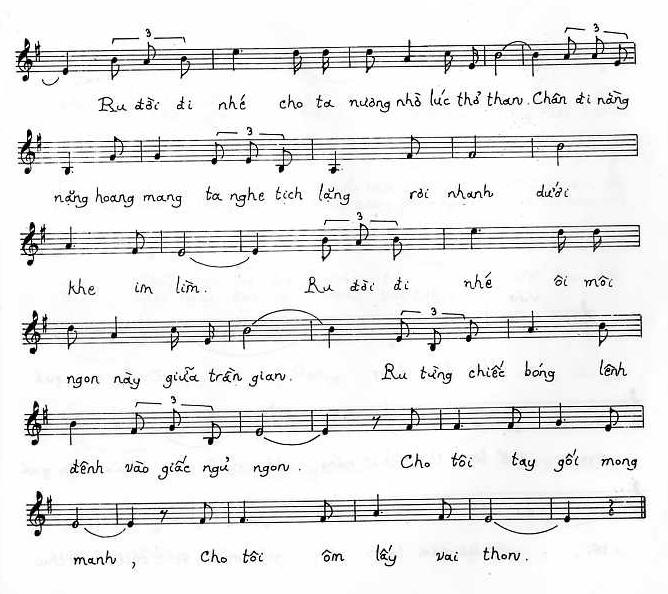 3 3
Ru đời đi nhé cho ta nương nhờ lúc thở than. Chân đi nằng
3
nặng hoang mang ta nghe tịch lặng rơi nhanh dưới
3
khe im lìm. Ru đời đi nhé ôi môi
3
ngon này giữa trần gian. Ru từng chiếc bóng lênh
3
đênh vào giấc ngủ ngon. Cho tôi tay gối mong
manh, Cho tôi ôm lấy vai thon.